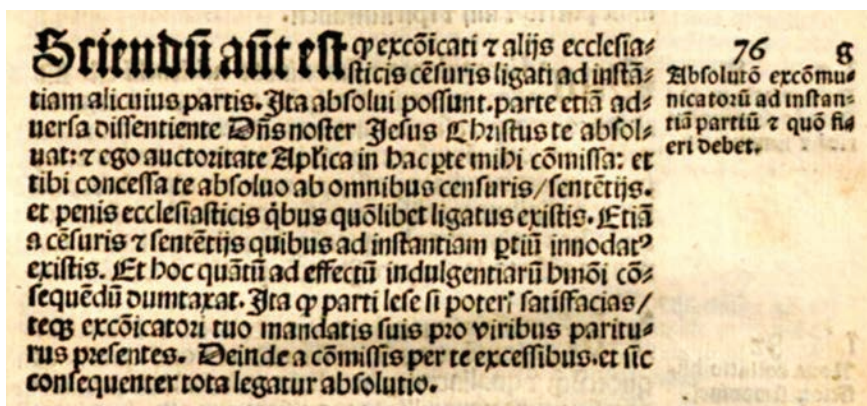 Sciendū aūt est ꝙ excōicati ⁊ alijs ecclesia⸗
sticis cēsuris ligati ad instā⸗
tiam alicuius partis. Ita absolui possunt. parte etiā ad⸗
uersa dissentiente Dn̄s noster Jesus Christus te absol⸗
uat: ⁊ ego auctoritate Apl̄ica in hac ꝑte mihi cōmissa: et
tibi concessa te absoluo ab omnibus censuris/sentētijs.
et penis ecclesiasticis q̇bus quōlibet ligatus existis. Etiā
a cēsuris ⁊ sentētijs quibus ad instantiam ꝑtiū innodatꝰ
existis. Et hoc quātū ad effectū indulgentiarū hmōi cō⸗
sequēdū dumtaxat. Ita ꝙ parti lese si poteris satisfacias/
teqꝫ excōicatori tuo mandatis suis pro viribus paritu⸗
rus presentes. Deinde a cōmissis per te excessibus. et sic
consequenter tota legatur absolutio.
76 g
Absolutō excōmu⸗
nicatorū ad instan⸗
tiā partiū ⁊ quō fi⸗
eri debet.